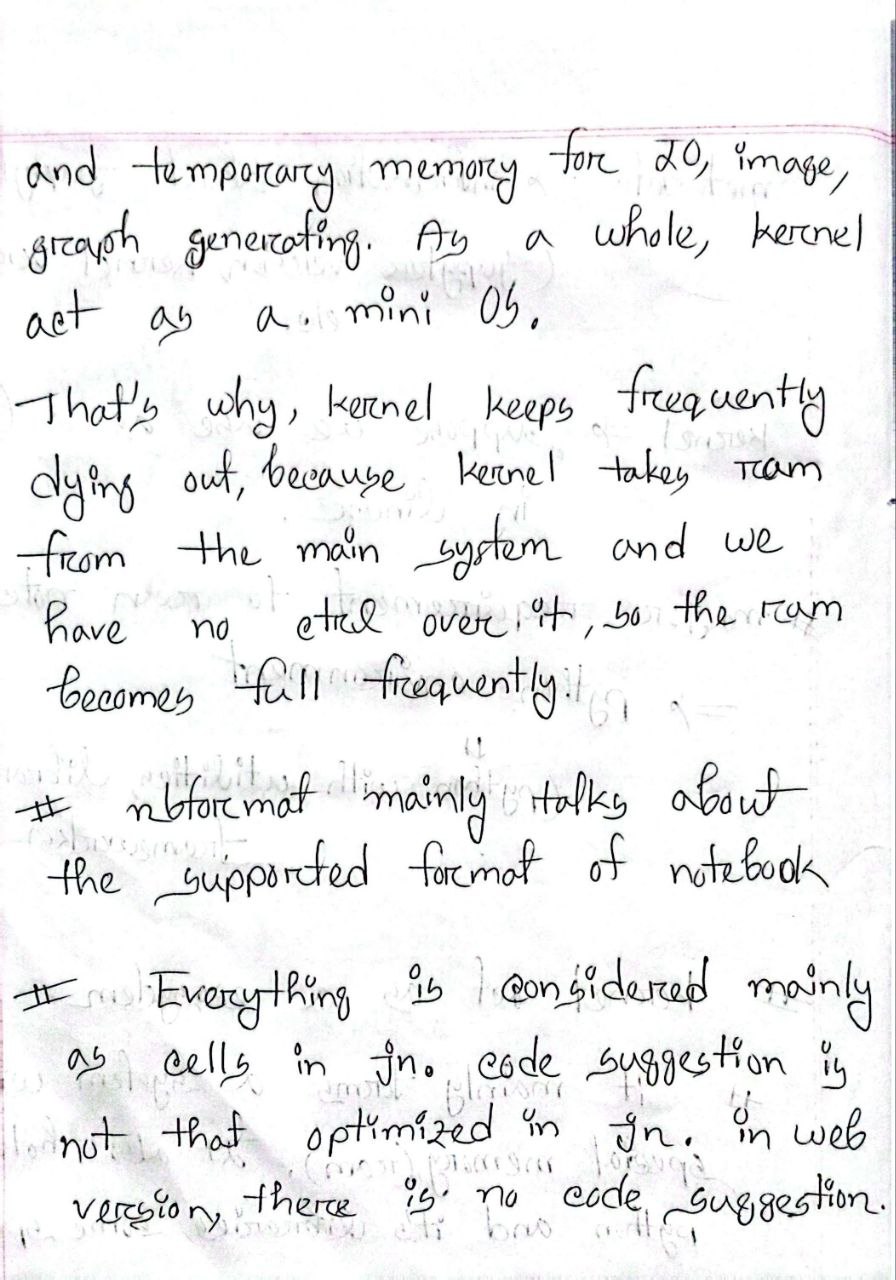 and temporary memory for IO, image,
graph generating. As a whole, kernel
act as a mini OS.
That's why, kernel keeps frequently
dying out, because kernel takes ram
from the main system and we
have no ctrl over it, so the ram
becomes full frequently.
# nbformat mainly talks about
the supported format of notebook
# Everything is considered mainly
as cells in jn. code suggestion is
not that optimized in jn. in web
version, there is no code suggestion.